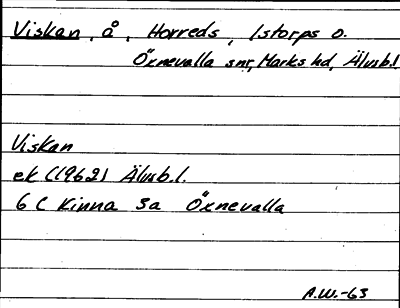 Viskan, å, Horreds, Istorps o.
Öxnevalla snr, Marks hd, Älvsb.l
Viskan
ek (1962) Älvsb.l.
6 C Kinna 3a Öxnevalla
A.W.-63